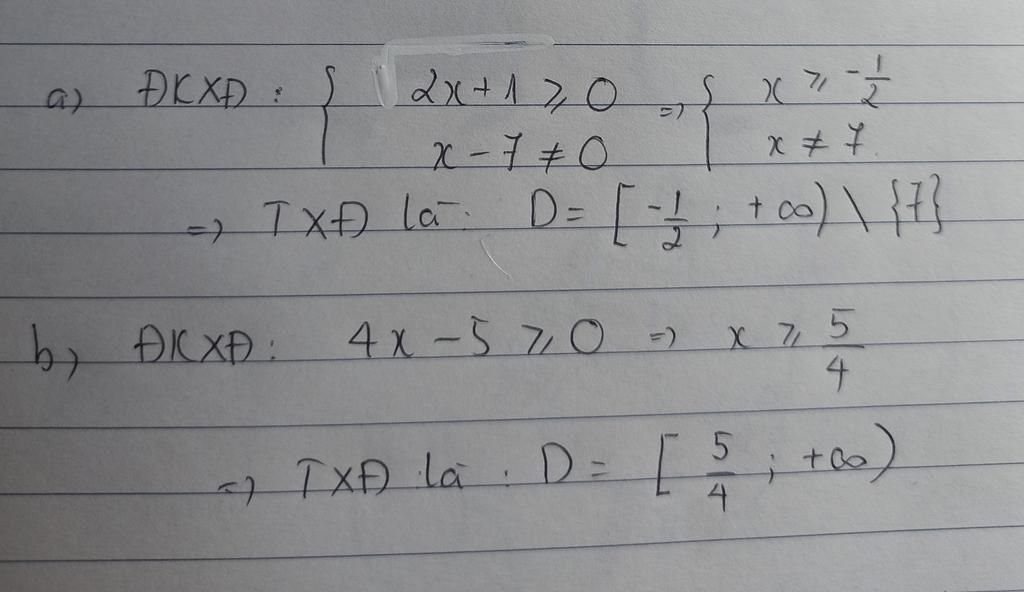 a) ĐKXĐ : { 2x+1 ⩾ 0 => { x ⩾ -1/2
x - 7 ≠ 0 x ≠ 7
=> TXĐ là : D = [ -1/2 ; +∞) \ {7}
b) ĐKXĐ : 4x - 5 ⩾ 0 => x ⩾ 5/4
=> TXĐ là : D = [ 5/4 ; +∞)